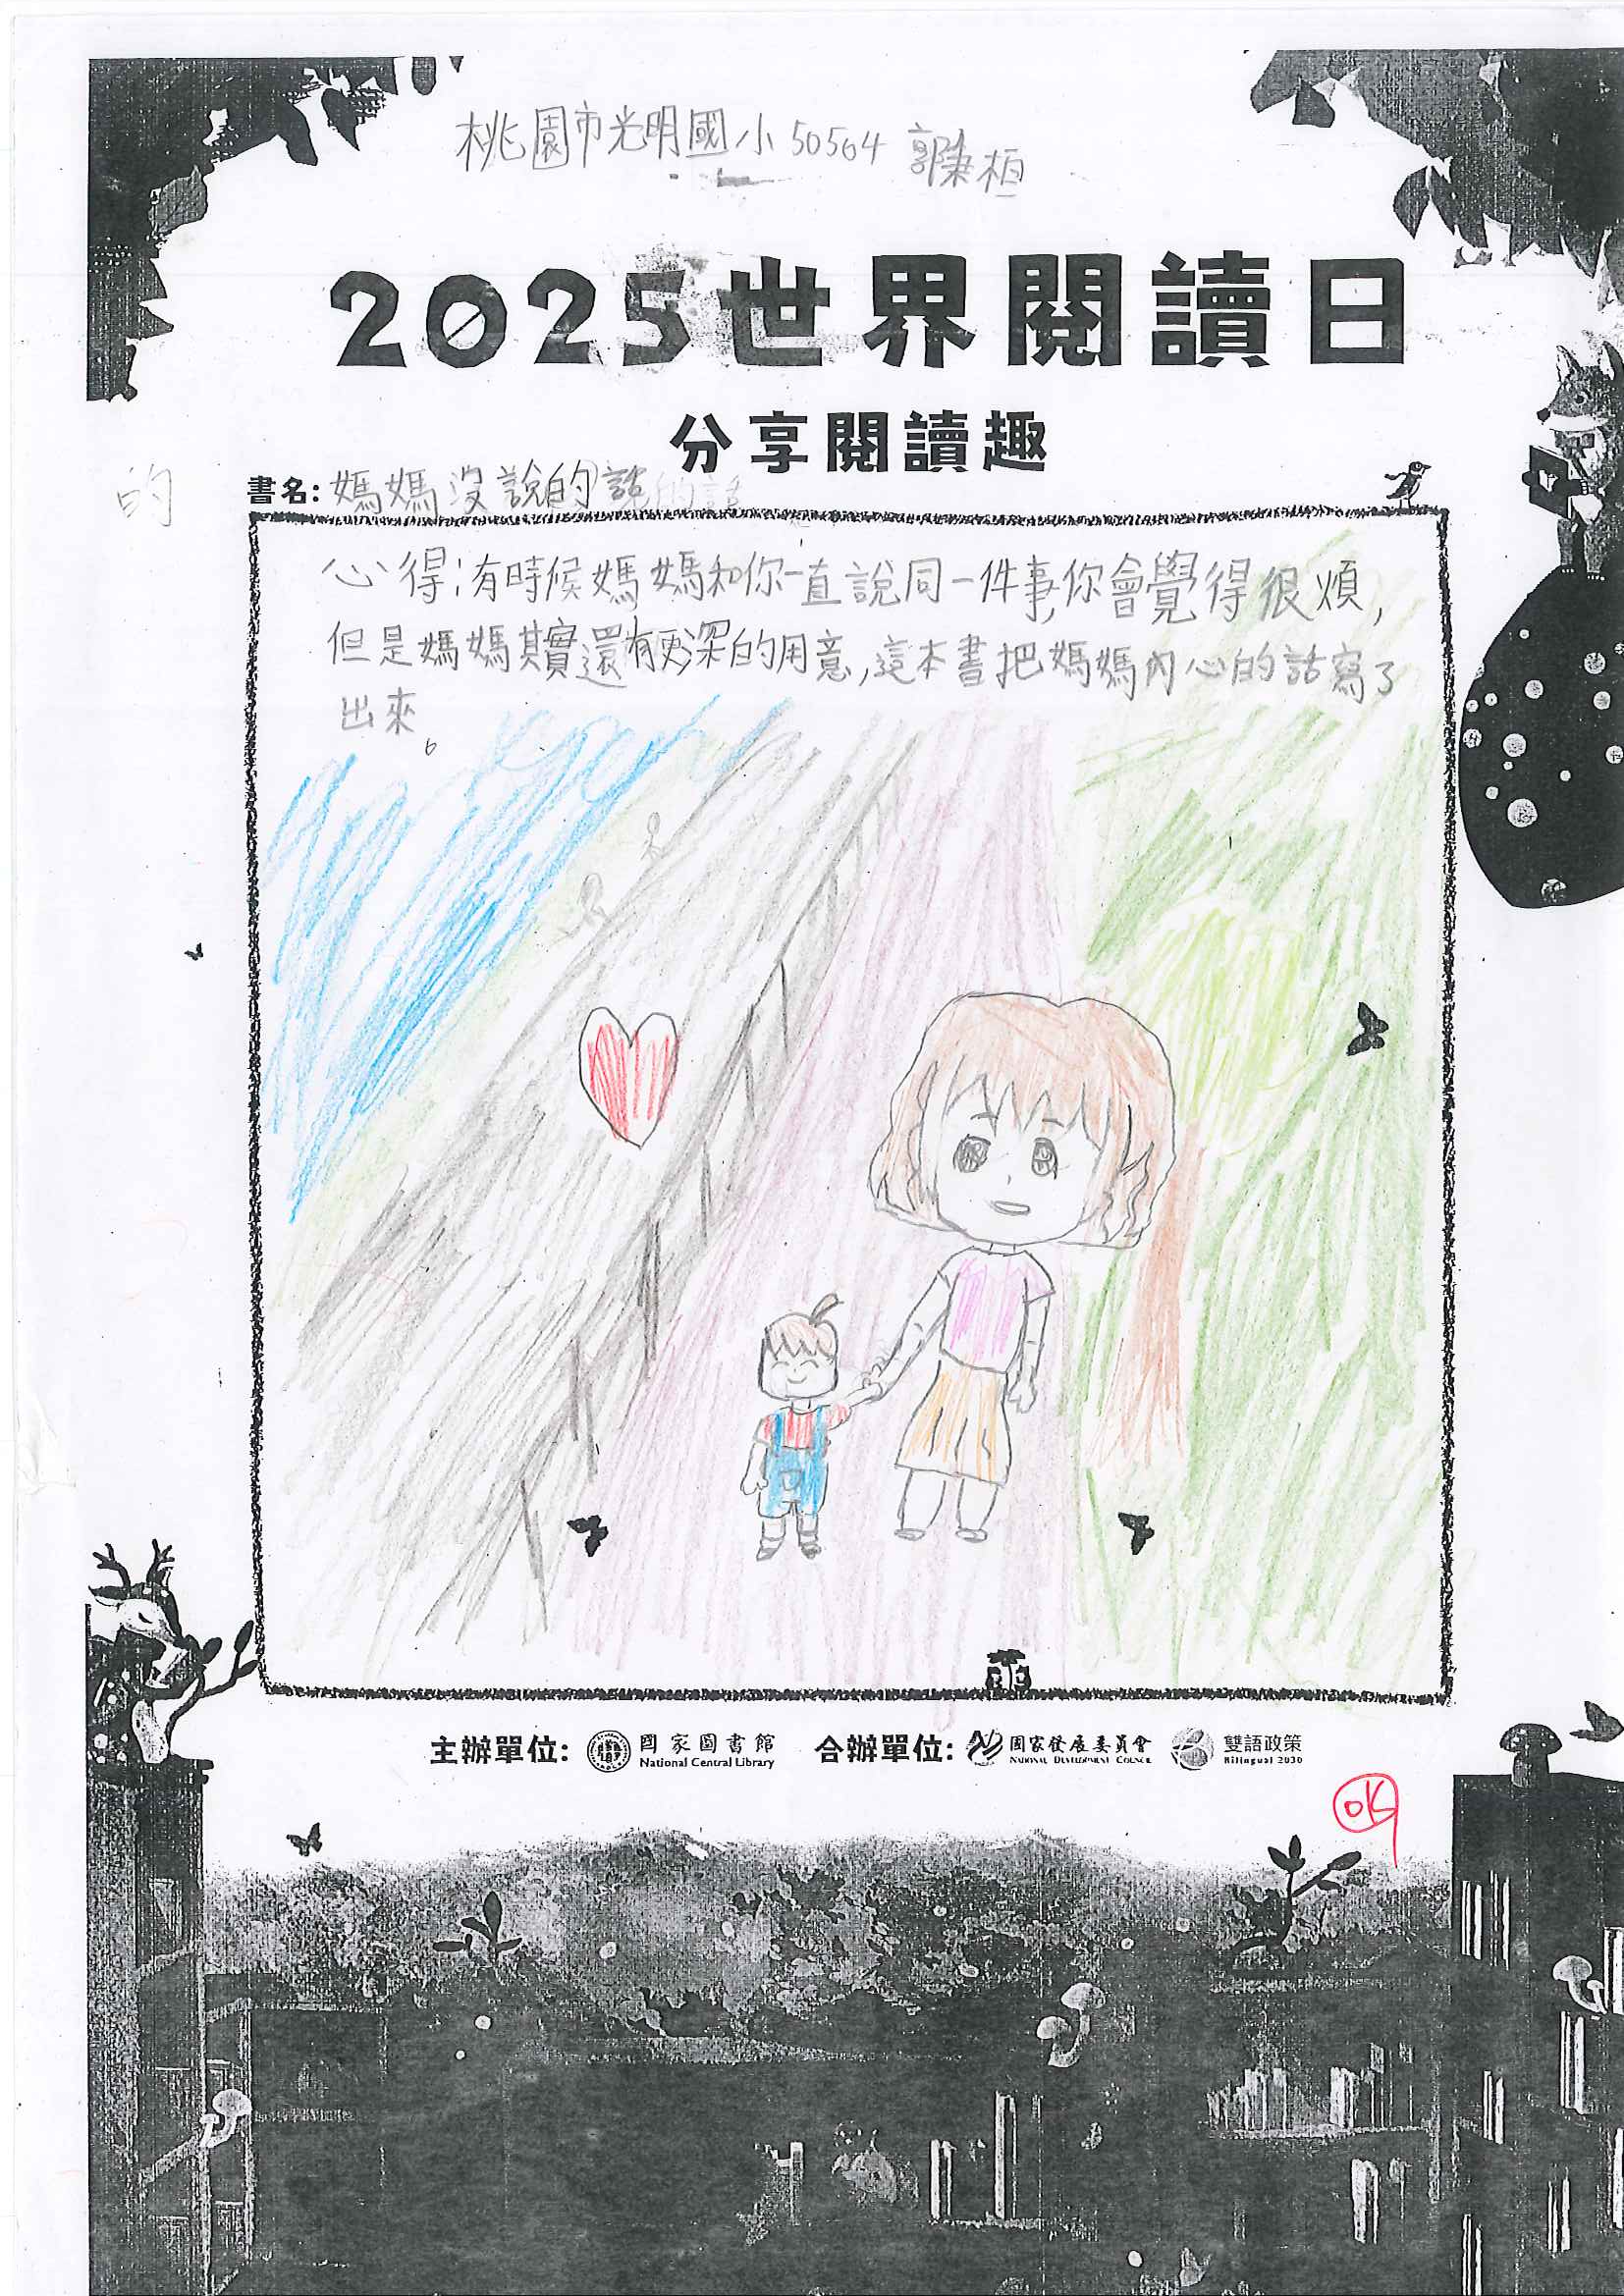 桃園市光明國小 50504 郭秉桓
2025世界閱讀日
分享閱讀趣
的
書名：媽媽沒說的話
心得：有時候媽媽和你一直說同一件事，你會覺得很煩，
但是媽媽其實還有更深的用意，這本書把媽媽內心的話寫了
出來。
主辦單位： 國家圖書館 National Central Library 合辦單位： 國家發展委員會 NATIONAL DEVELOPMENT COUNCIL 雙語政策 Bilingual 2030
OK